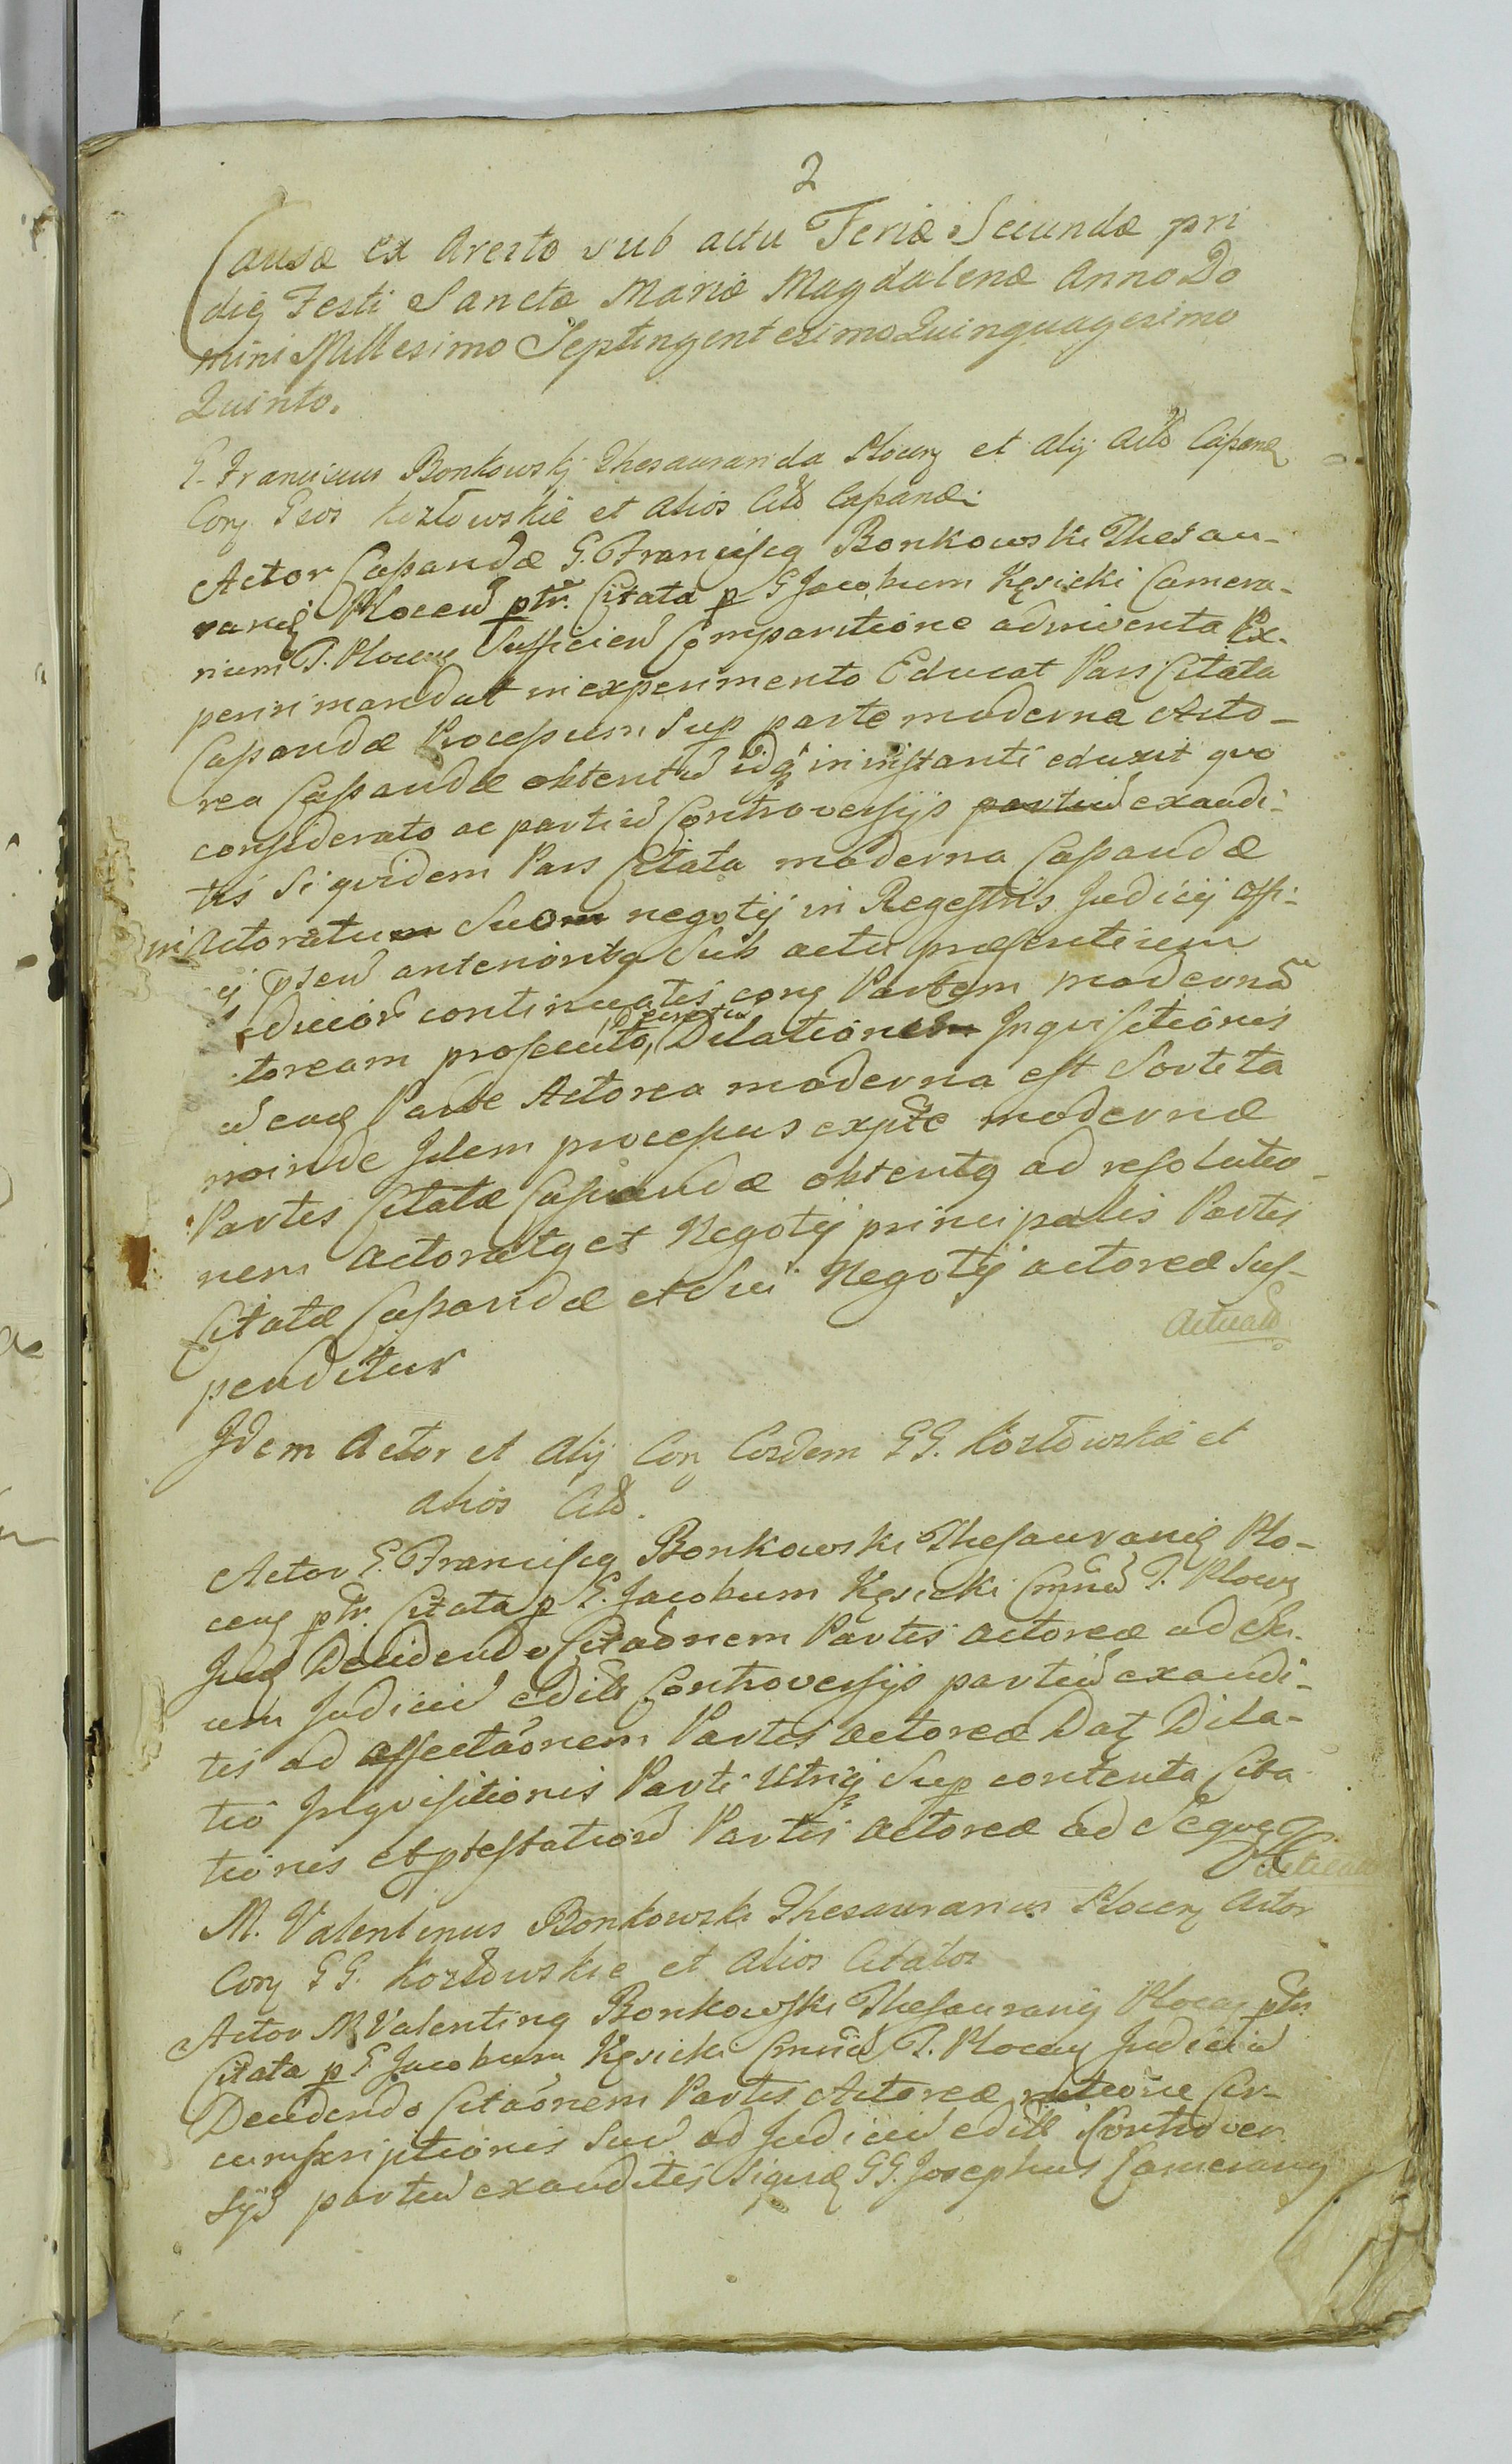 2
Causæ ex Aresto sub actu Feriæ Secundæ pri
die Festi Sanctæ Mariæ Magdalenæ Anno Do
mini Millesimo Septingentesimo Quinquagesimo
Quinto.
G. Franciscus Bonkowskj Thesauranida Plocen et alij Actõ Cassanđ
Con Gsos Kozłowskie et alios Citõ Cassandæ
Actor Cassandæ G. Franciscq Bonkowski Thesau-
raniđ Plocen ptr. Citata p G Jacobum Kęsicki Camera-
rium T. Plocen Sufficien Comparitione adinventa Ex-
periri mandat in experimento Educat Pars Citata
Cassandæ Processum Sup parte moderna Acto-
rea Cassandæ obtentũ idq in instanti eduxit quo
considerato ac partiũ Controversijs partiũ exaudi-
tis Siquidem Pars Citata moderna Cassandæ
in Actoratu Suo negotij in Regestris Judicij offi-
anterioritq Sub actu præsentium
continuatis con Partem modernã
toream prosecuto, Dilatione Inquisitionis
Parte Actorea moderna est Sortita
proinde Idem processus ex pte modernæ
Partis Citatæ Cassandæ obtentq ad resolutio-
nem actoratq et Negotij principalis Partis
Citatæ Cassandæ et Sui Negotij actoreæ Sus-
penditur
Actuatõ
Idem Actor et alij Con Eosdem GG. Kozłowskie et
alios Citõ.
Actor G. Franciscq Bonkowski Thesauraniđ Plo-
cen ptr. Citata p G. Jacobum Kęsicki Cmrũ T. Plocen
Decidendo Citaõnem Partis actoreæ ad
um Judiciũ editã Controversijs partiũ exaudi-
tis ad affectaõnem Partis actoreæ Dat Dila-
tio Inquisitionis Parti Utriq Sup contenta Cita
tionis et ptestationũ Partis actoreæ ad Seque
Actuatõ
M. Valentinus Bonkowski Thesaurarius Plocen Actor
Con GG. Kozłowskie et alios Citatos
Actor M Valentinq Bonkowski Thesaurariq Plocen ptr
Citata p G. Jacobum Kęsicki Cmrũ T. Plocen Judiciũ
Decidendo Citaõnem Partis Actoreæ ratione Cir-
cumscriptionis Suæ ad Judiciũ editã Controver
sijs partiũ exauditis Siquiđ GG. Josephus Camerariq